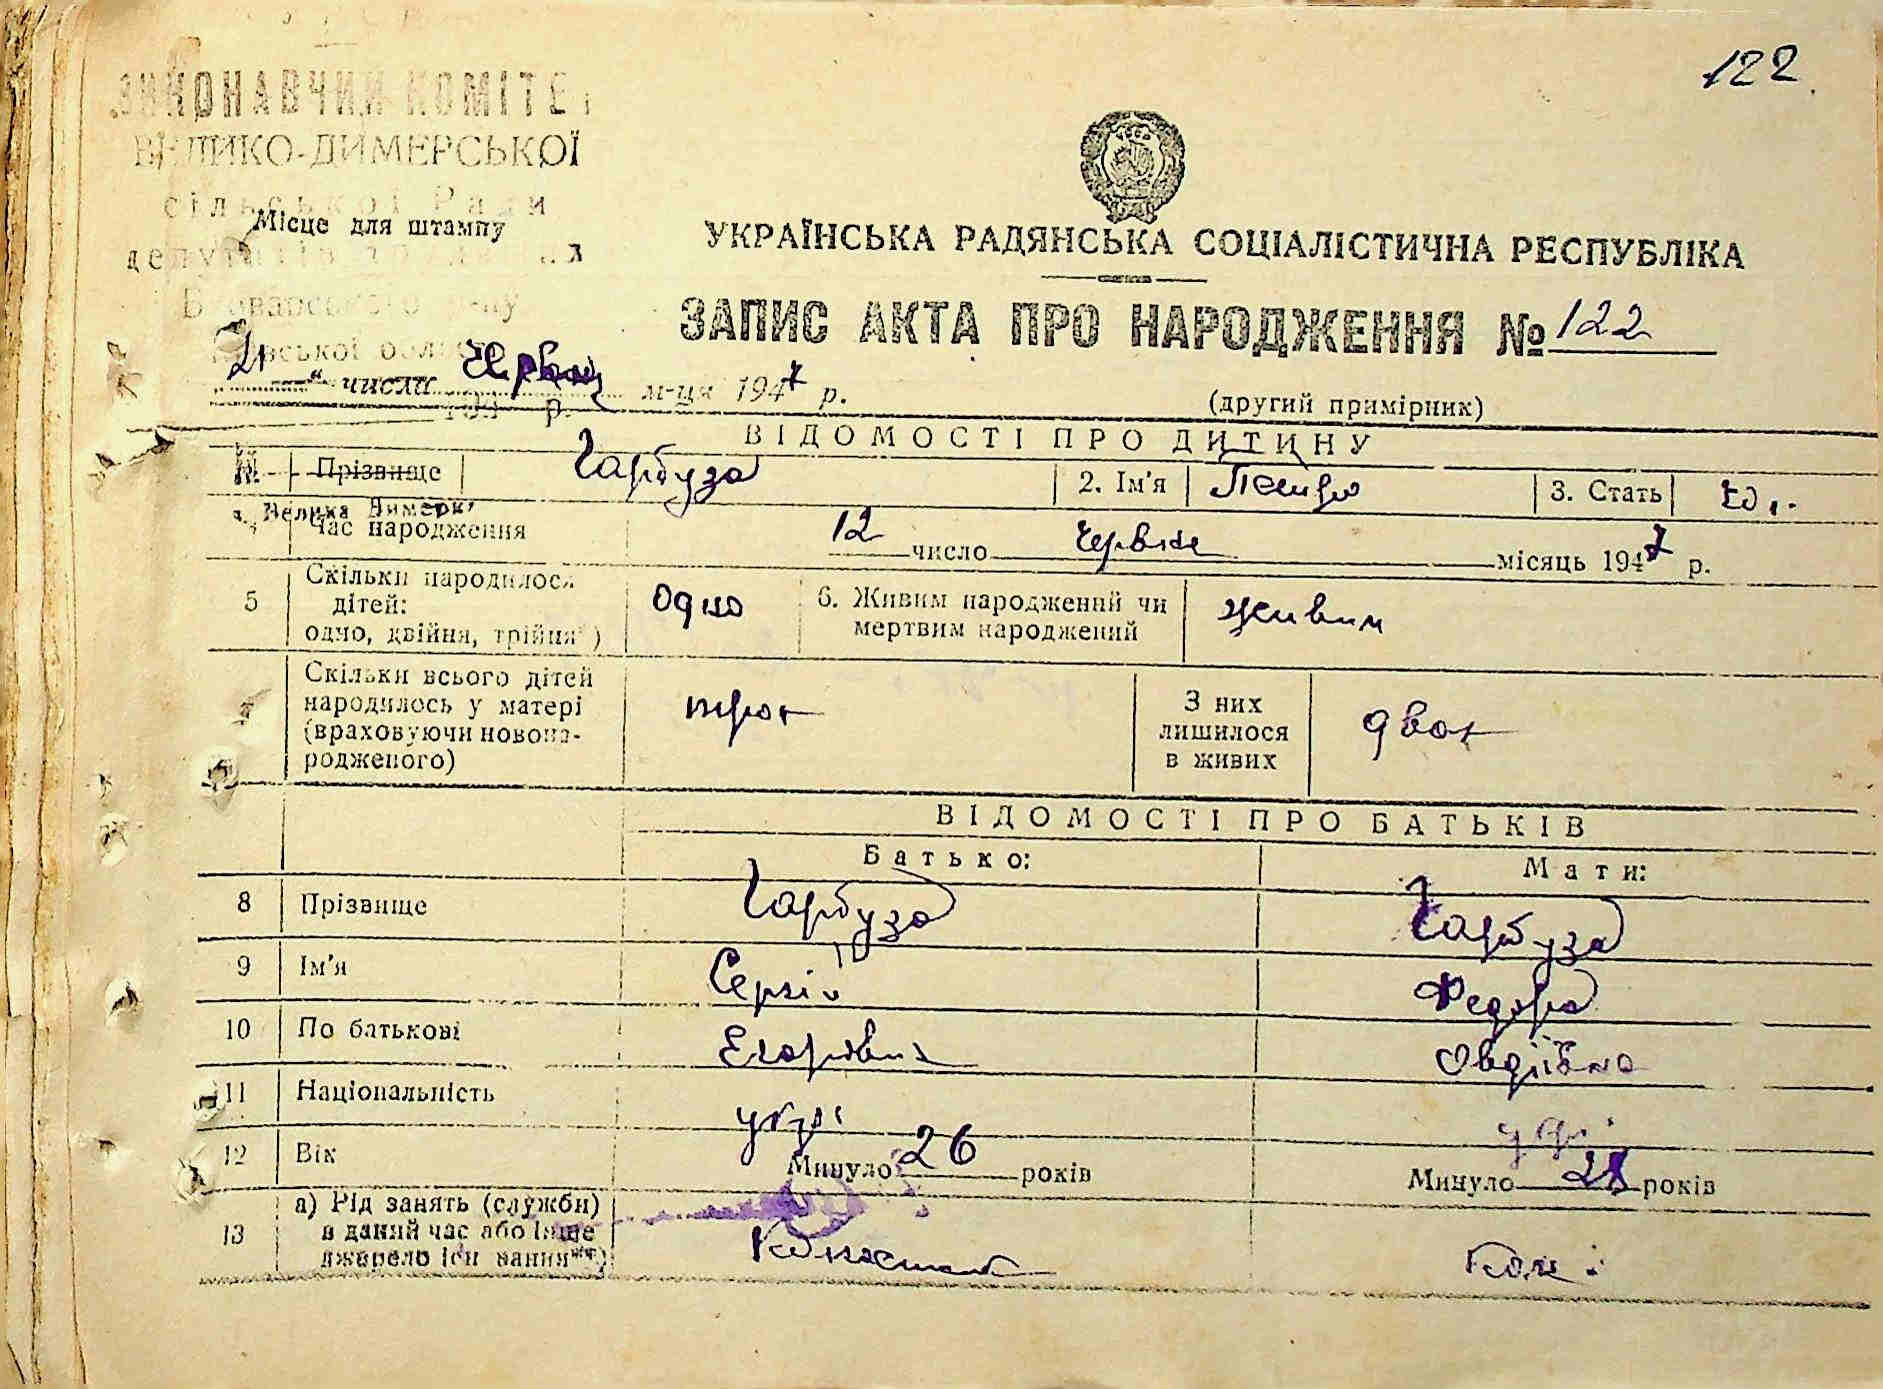 122
ВИКОНАВЧИЙ КОМІТЕТ
ВЕЛИКО-ДИМЕРСЬКОЇ
сільської Ради
Місце для штампу
депутатів
УКРАЇНСЬКА РАДЯНСЬКА СОЦІАЛІСТИЧНА РЕСПУБЛІКА
ЗАПИС АКТА ПРО НАРОДЖЕННЯ № 122
21 " числа червня м-ця 1947 р.
(другий примірник)
ВІДОМОСТІ ПРО ДИТИНУ
Прізвище Гарбуза 2. Ім'я Петро 3. Стать
с. Велика Димерка
Час народження 12 число червня місяць 1947 р.
5 Скільки народилося дітей: одно, двійня, трійня*) Одно 6. Живим народжений чи мертвим народжений живим
Скільки всього дітей народилось у матері (враховуючи новона-родженого) троє З них лишилося в живих двоє
ВІДОМОСТІ ПРО БАТЬКІВ
Батько: Мати:
8 Прізвище Гарбуза Гарбуза
9 Ім'я Сергій Федора
10 По батькові Егорович Овдіївна
11 Національність укр. укр.
12 Вік Минуло 26 років Минуло 28 років
13 а) Рід занять (служби) в даний час або інше джерело існування**) Колгоспник